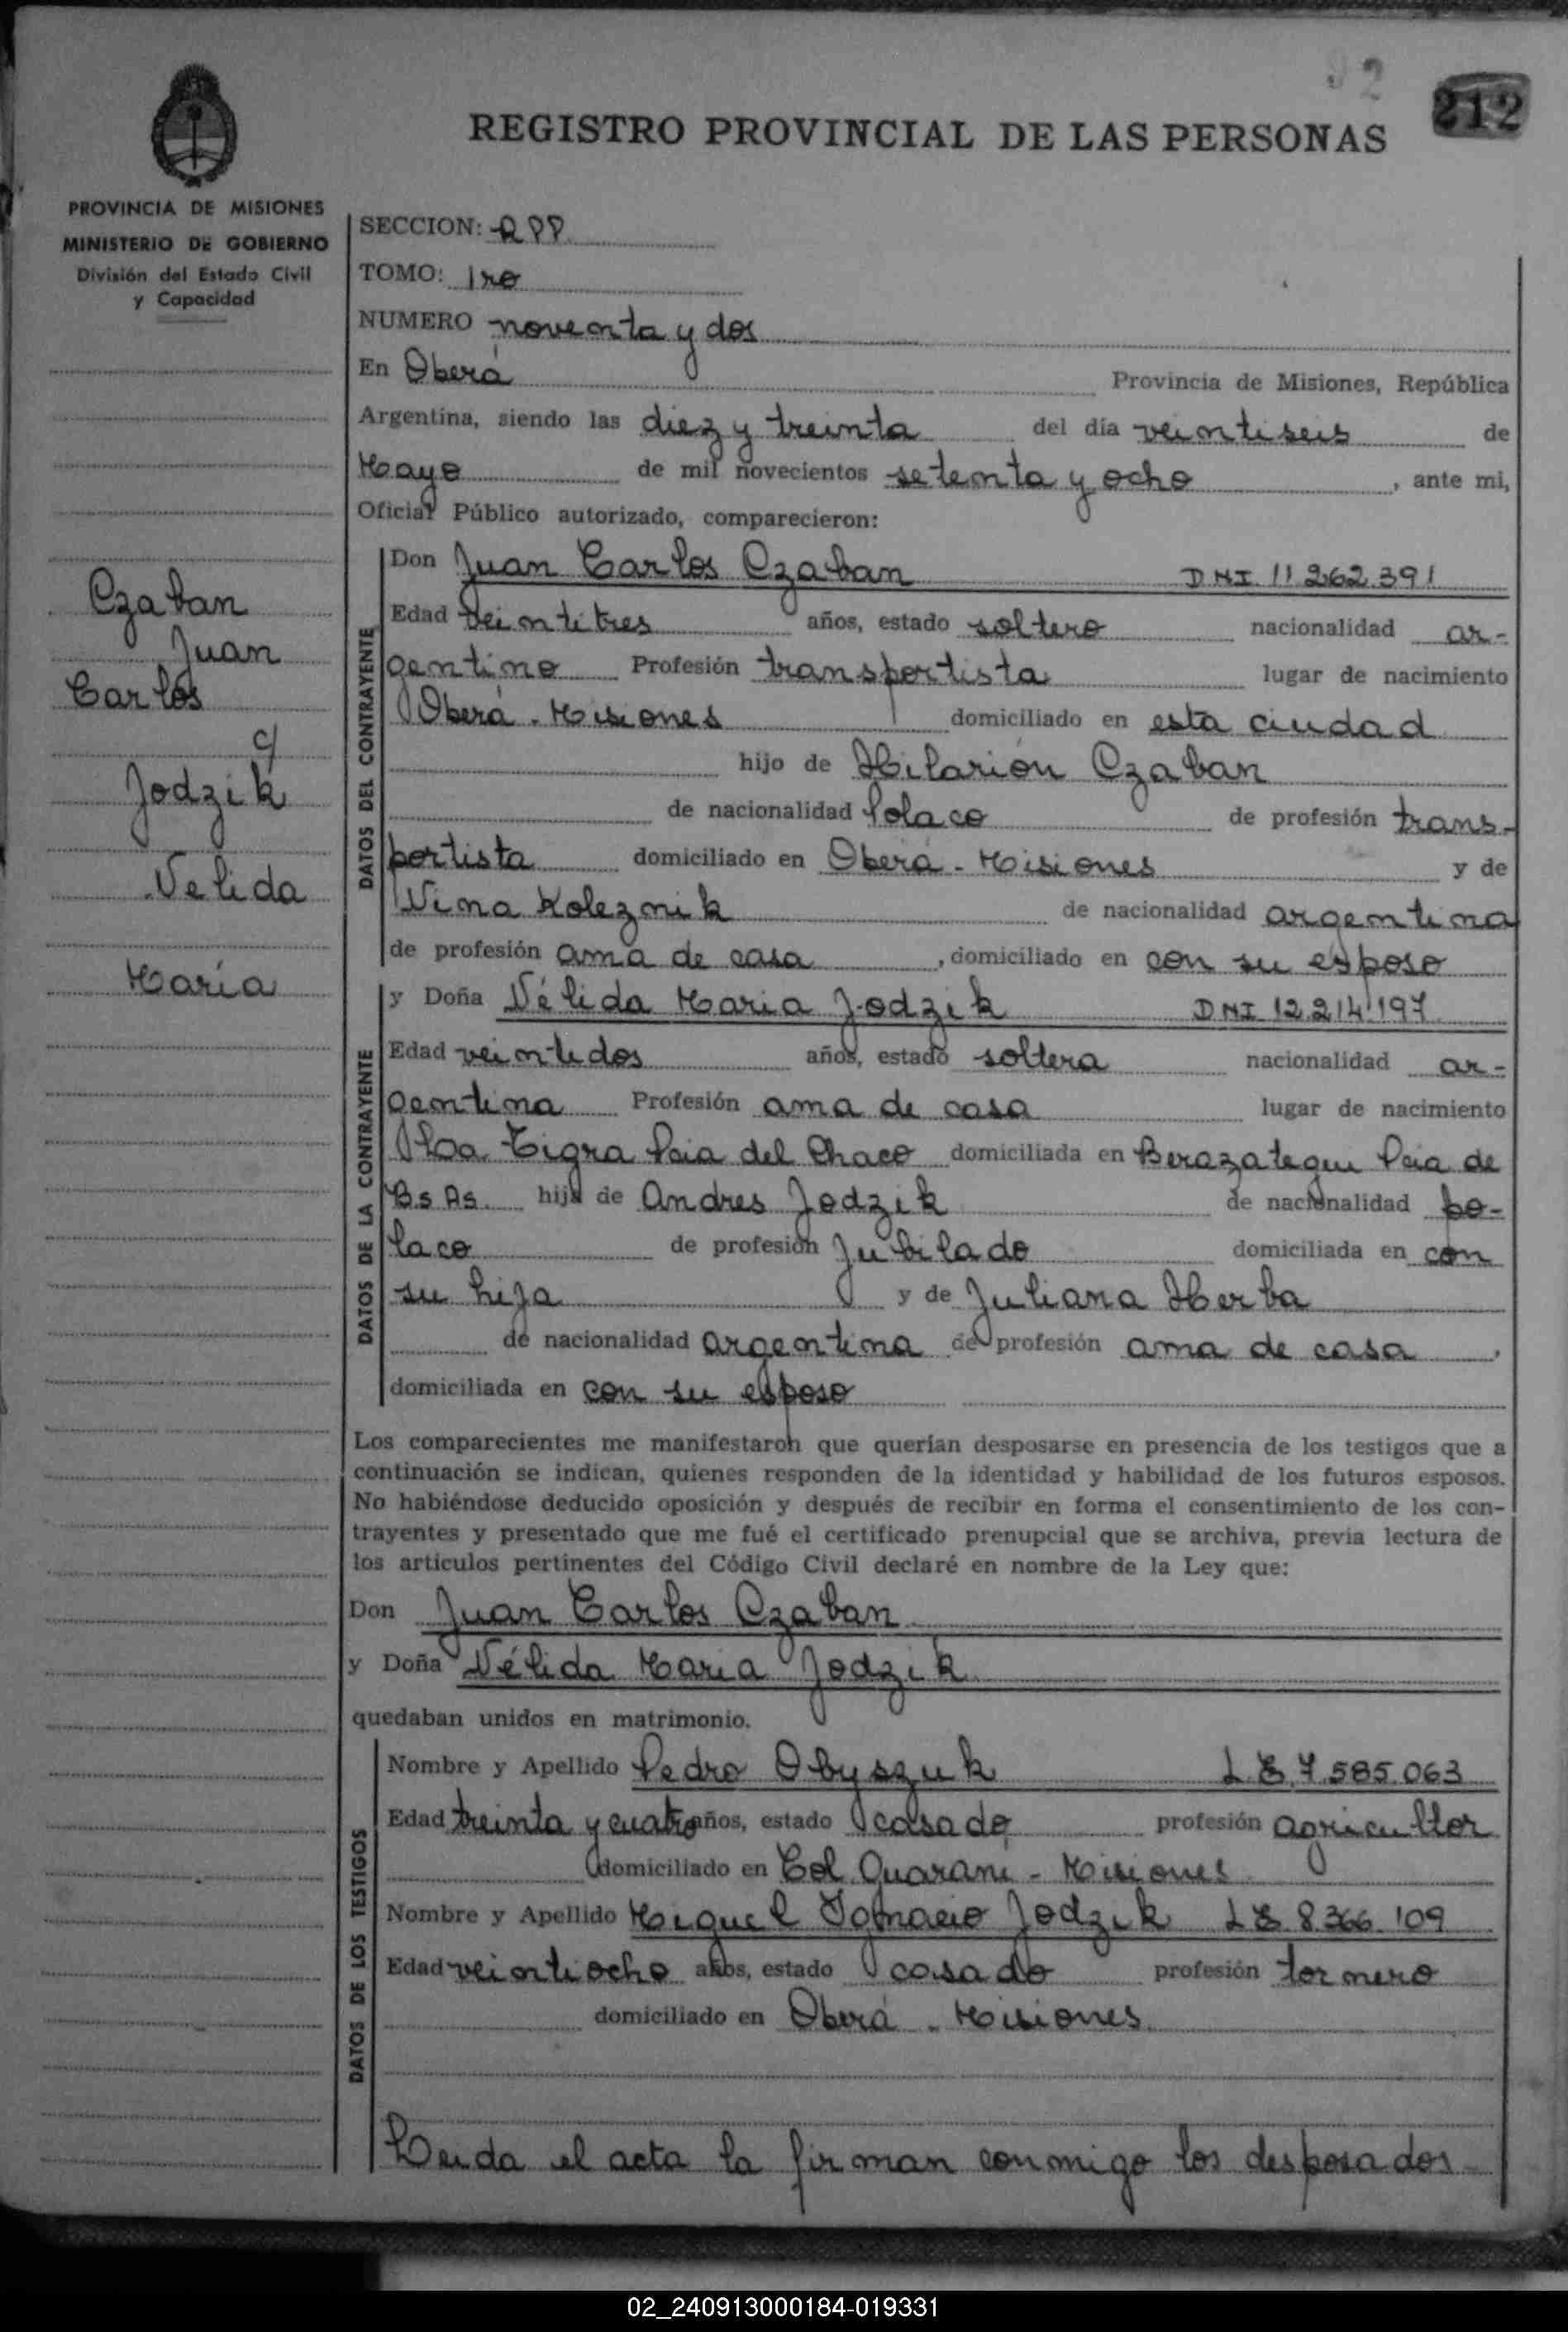 92
212
REGISTRO PROVINCIAL DE LAS PERSONAS
PROVINCIA DE MISIONES
MINISTERIO DE GOBIERNO
División del Estado Civil
y Capacidad
Czaban
Juan
Carlos
c/
Jodzik
Nelida
María
SECCION: RPP
TOMO: 1ro
NUMERO noventa y dos
En Oberá Provincia de Misiones, República
Argentina, siendo las diez y treinta del día veintiseis de
Mayo de mil novecientos setenta y ocho, ante mi,
Oficial Público autorizado, comparecieron:
DATOS DEL CONTRAYENTE
Don Juan Carlos Czaban DNI 11.262.391
Edad veintitres años, estado soltero nacionalidad ar-
gentino Profesión transportista lugar de nacimiento
Oberá - Misiones domiciliado en esta ciudad
hijo de Hilarión Czaban
de nacionalidad Polaco de profesión trans-
portista domiciliado en Oberá - Misiones y de
Nina Koleznik de nacionalidad argentina
de profesión ama de casa, domiciliado en con su esposo
DATOS DE LA CONTRAYENTE
y Doña Nélida Maria Jodzik DNI 12.214.197
Edad veintidos años, estado soltera nacionalidad ar-
gentina Profesión ama de casa lugar de nacimiento
La Tigra Pcia del Chaco domiciliada en Berazategui Pcia de
Bs As. hija de Andres Jodzik de nacionalidad po-
laco de profesión Jubilado domiciliada en con
su hija y de Juliana Herba
de nacionalidad argentina de profesión ama de casa,
domiciliada en con su esposo
Los comparecientes me manifestaron que querían desposarse en presencia de los testigos que a
continuación se indican, quienes responden de la identidad y habilidad de los futuros esposos.
No habiéndose deducido oposición y después de recibir en forma el consentimiento de los con-
trayentes y presentado que me fué el certificado prenupcial que se archiva, previa lectura de
los artículos pertinentes del Código Civil declaré en nombre de la Ley que:
Don Juan Carlos Czaban
y Doña Nélida Maria Jodzik
quedaban unidos en matrimonio.
DATOS DE LOS TESTIGOS
Nombre y Apellido Pedro Obyszuk L.E. 7.585.063
Edad treinta y cuatro años, estado casado profesión agricultor
domiciliado en Col. Guaraní - Misiones
Nombre y Apellido Miguel Ignacio Jodzik L.E 8.366.109
Edad veintiocho años, estado casado profesión tornero
domiciliado en Oberá - Misiones
Leida el acta la firman conmigo los desposados
02_240913000184-019331